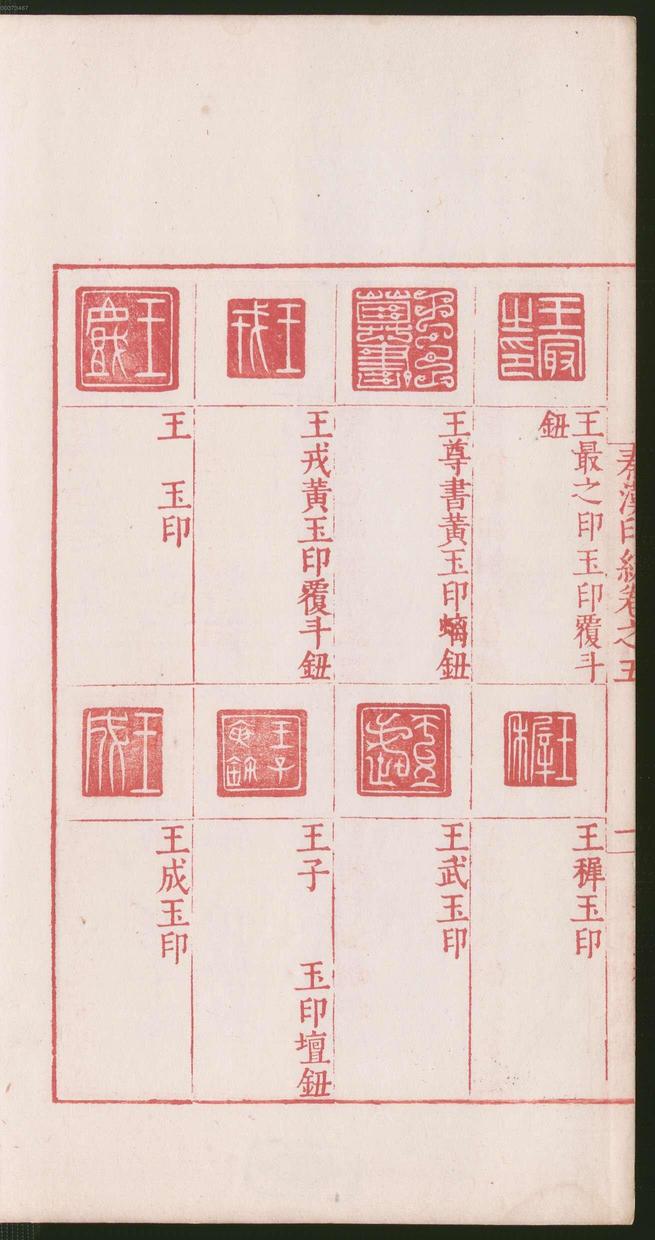 00373467
秦漢印統卷之五
一
王最之印玉印覆斗
鈕
王尊書黃玉印螭鈕
王戎黃玉印覆斗鈕
王　玉印
王穉玉印
王武玉印
王子　　玉印壇鈕
王成玉印
王最之印
王戎
王成